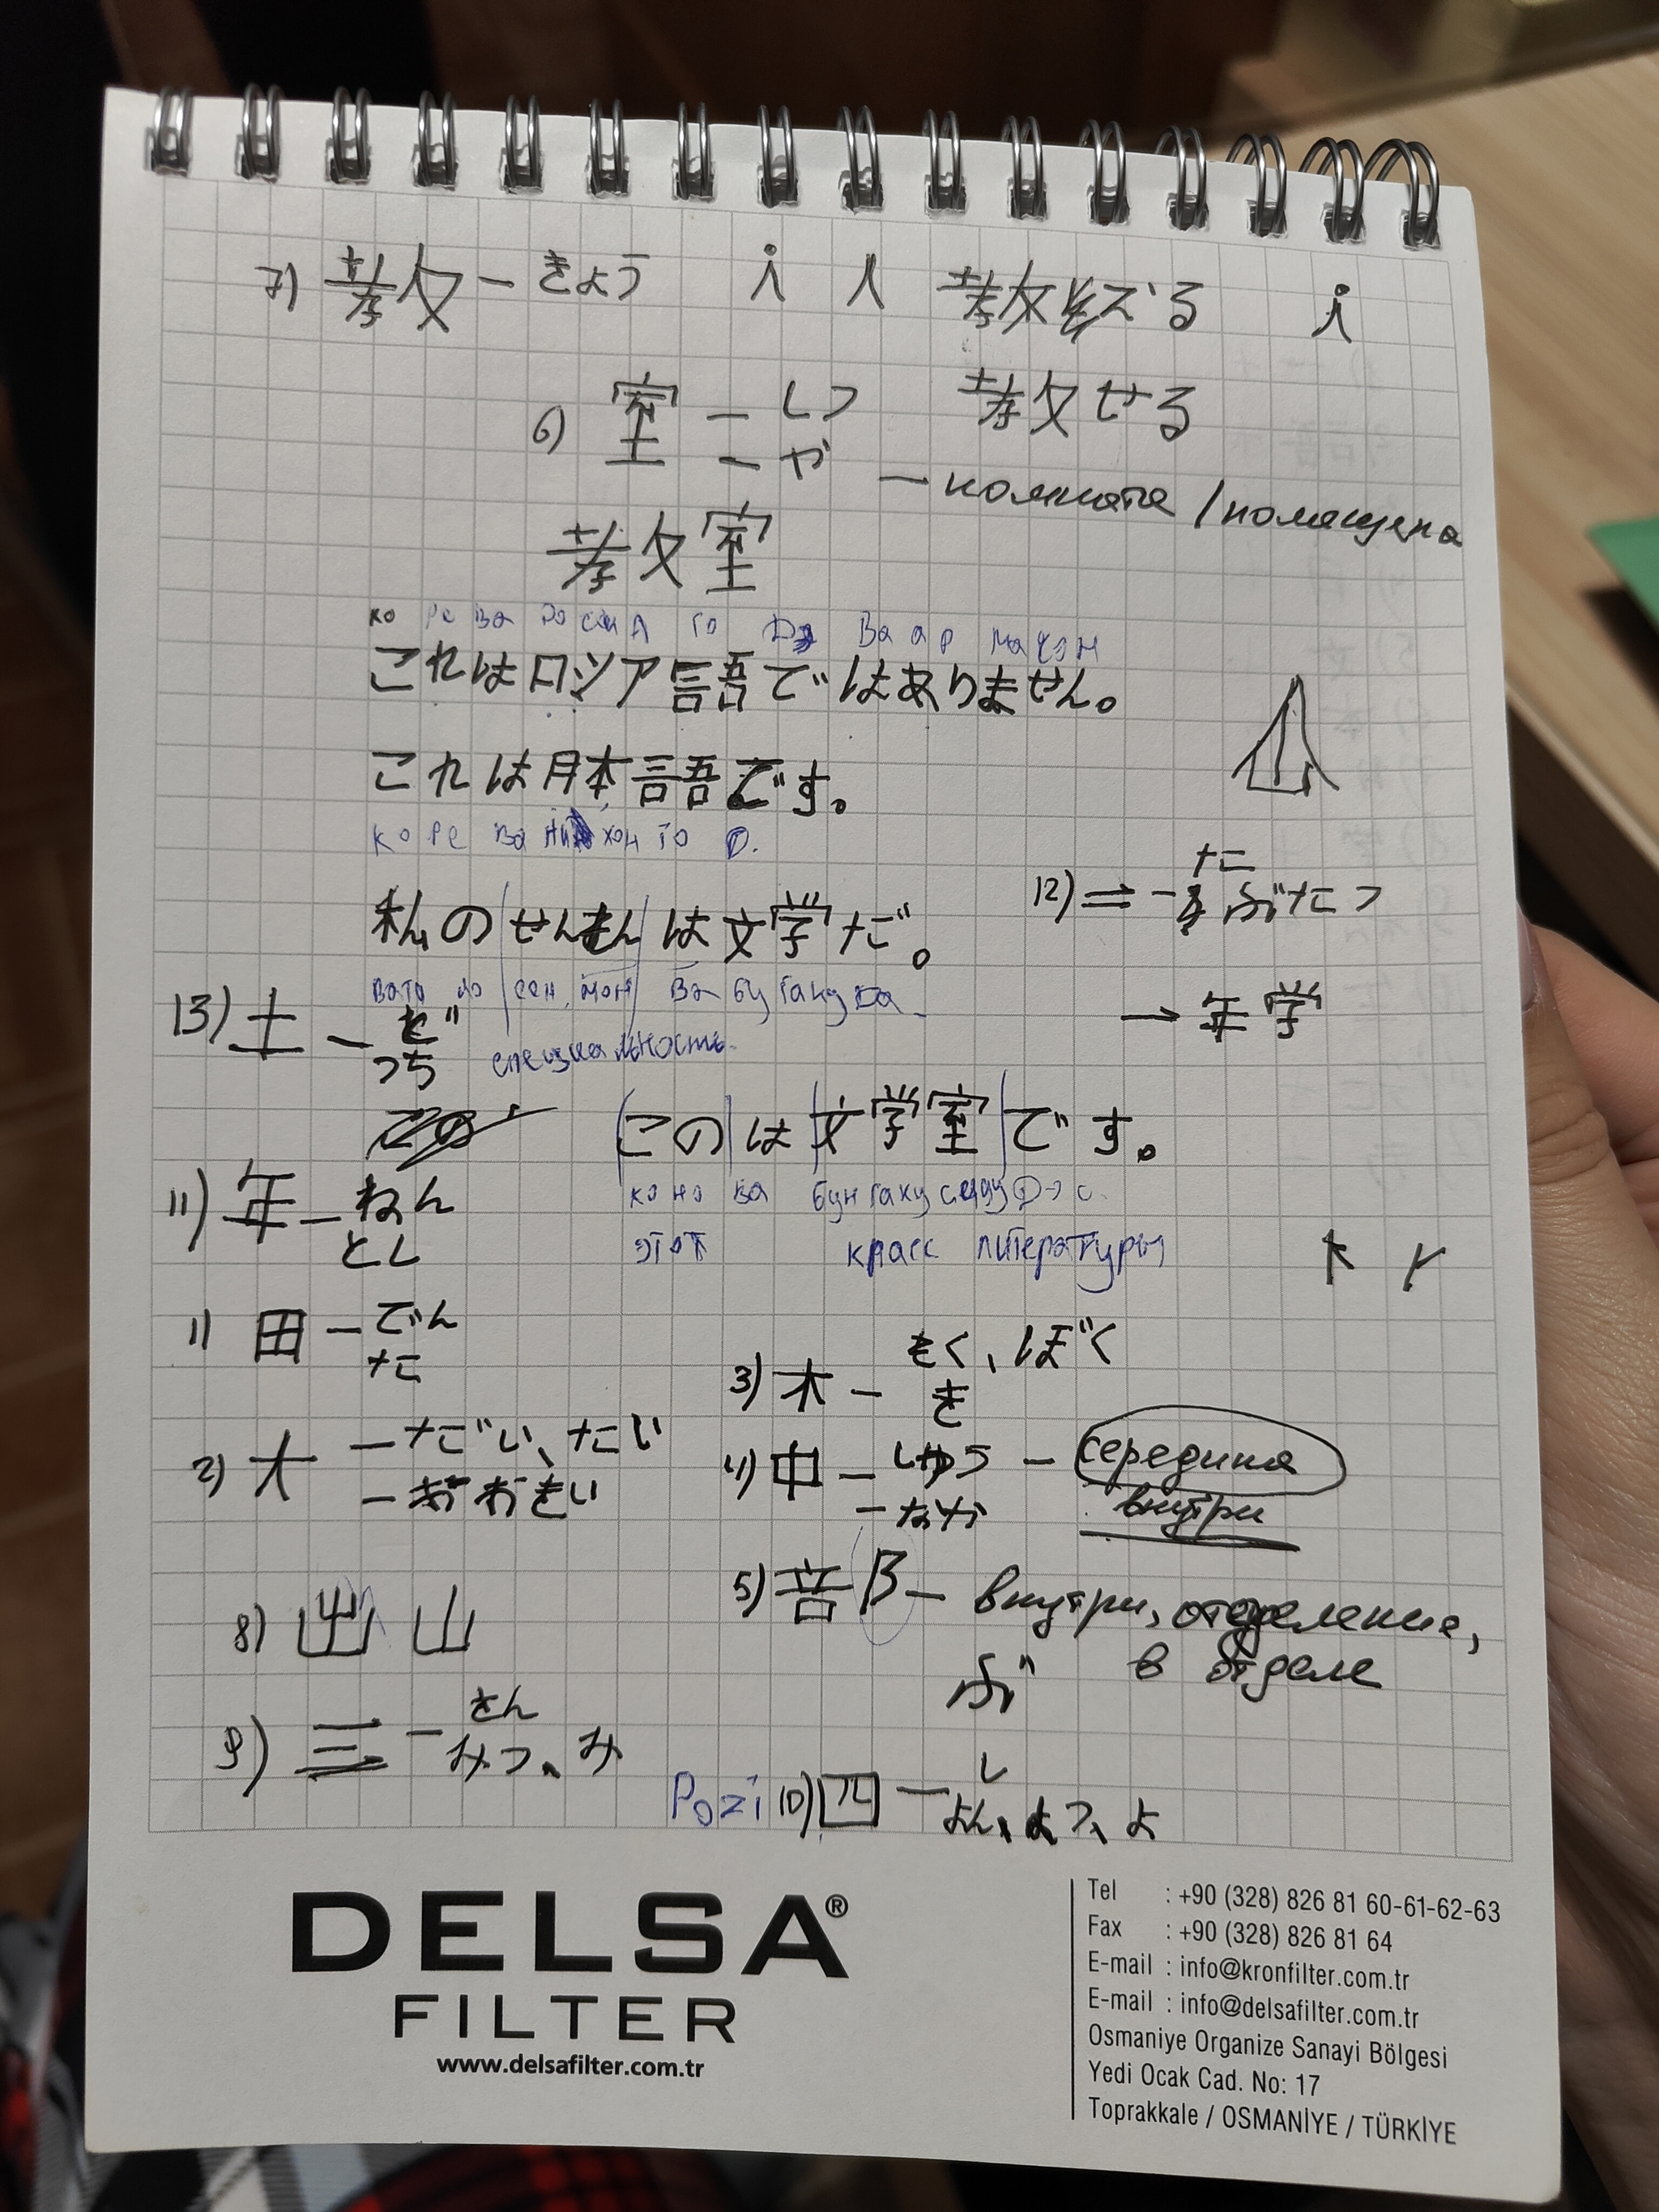 7) 教 – きょう i 教える i
6) 室 – しつ 教せる
– や – комната / помещена
教室
ко ре ва росси А го Д ва а р масэн
これはロシア語ではありません。
これは日本語です。
ко ре ва ни хон го D.
12) 二 – に ふたつ
私のせんもんは文学だ。
вата но сен мон ва бу гаку Да
→ 年学
13) 土 – ど
つち специальность
このは文学室です。
коно ва бунгаку сицу Дэ с.
11) 年 – ねん
とし этот класс литературы
1) 田 – でん
た
3) 木 – もく、ぼく
き
2) 大 – だい、たい
– おおきい
4) 中 – しゅう – середина
– なか внутри
5) 部 – внутри, отделение,
ぶ в отделе
8) 出 山
9) 三 – さん
みつ、み
Pozi 10) 四 – し
よん、よつ、よ
DELSA®
FILTER
www.delsafilter.com.tr
Tel : +90 (328) 826 81 60-61-62-63
Fax : +90 (328) 826 81 64
E-mail : info@kronfilter.com.tr
E-mail : info@delsafilter.com.tr
Osmaniye Organize Sanayi Bölgesi
Yedi Ocak Cad. No: 17
Toprakkale / OSMANİYE / TÜRKİYE